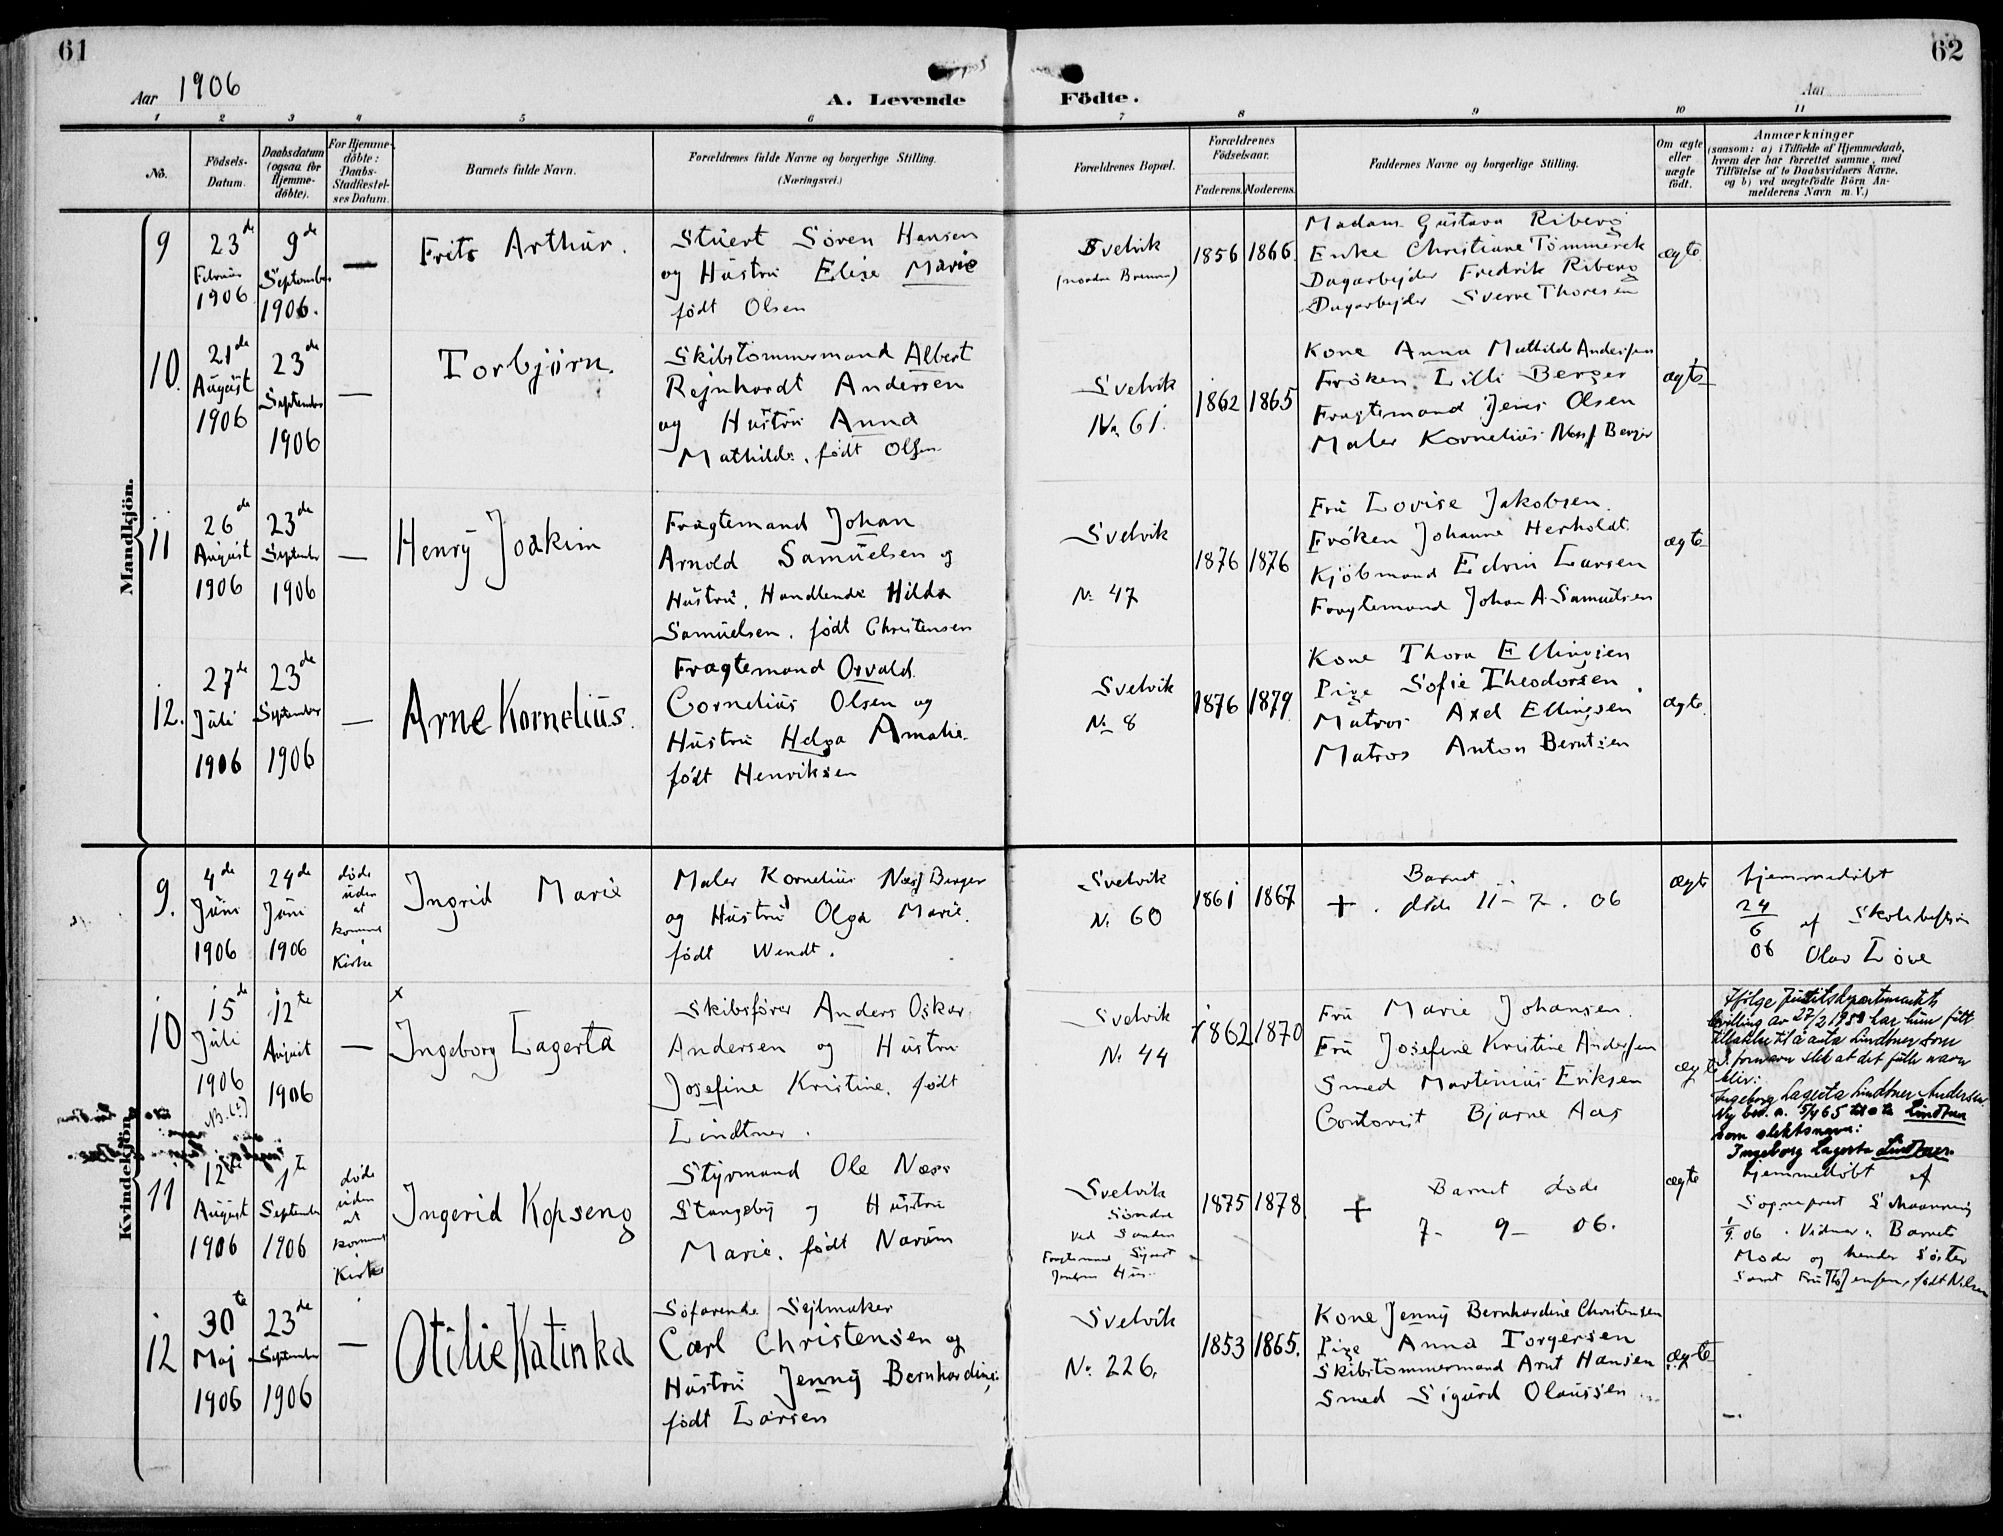 61
62
Aar 1906
A. Levende Födte.
Aar
1 2 3 4 5 6 7 8 9 10 11
No.
Födsels-Datum.
Daabsdatum (ogsaa for Hjemme-döbte).
For Hjemme-döbte: Daabs-Stadfæstel-ses Datum.
Barnets fulde Navn.
Forældrenes fulde Navne og borgerlige Stilling.
(Næringsvei.)
Forældrenes Bopæl.
Forældrenes Födselsaar.
Faderens. Moderens.
Faddernes Navne og borgerlige Stilling.
Om ægte eller uægte födt.
Anmærkninger
(saasom: a) i Tilfælde af Hjemmedaab,
hvem der har forrettet samme, med
Tilföielse af to Daabsvidners Navne,
og b) ved uægtefödte Börn An-
melderens Navn m. V.)
Mandkjön.
9
23de
Februar
1906
9de
September
1906.
—
Frits Arthur.
Stuert Sören Hansen
og Hustru Elise Marie
født Olsen
Svelvik
1856 1866
Madam Gustava Riberg
Enke Christiane Tömmerek
Dagarbejder Fredrik Riberg
Dagarbejder Sverre Thoresen
ægte
10.
21de
August
1906
23de
September
1906
—
Torbjörn.
Skibstømmermand Albert
Rejnhardt Andersen
og Hustru Anna
Mathilde, født Olsen
Svelvik
No 61.
1862 1865
Kone Anna Mathilde Andersen
Frøken Lilli Berger
Fragtemand Jens Olsen
Maler Kornelius Næss Berger
ægte
11
26de
August
1906
23de
September
1906
—
Henry Joakim
Fragtemand Johan
Arnold Samuelsen og
Hustru, Handlende Hilda
Samuelsen, født Christensen
Svelvik
No 47
1876 1876
Fru Lovise Jakobsen.
Frøken Johanne Herholdt.
Kjöbmand Edvin Larsen
Fragtemand Johan A. Samuelsen
ægte
12.
27de
Juli
1906
23de
September
1906
—
Arne Kornelius.
Fragtemand Osvald
Cornelius Olsen og
Hustru Helga Amalie
født Henriksen
Svelvik
No 8
1876 1879
Kone Thora Ellingsen
Pige Sofie Theodorsen.
Matros Axel Ellingsen
Matros Anton Berntsen
ægte.
Kvindekjön.
9.
4de
Juni
1906
24de
Juni
1906
døde
uden
at
komme
i
Kirke
Ingrid Marie
Maler Kornelius Næss Berger
og Hustru Olga Marie.
født Wendt.
Svelvik
No 60
1861 1867
Barnet
+. døde 11-7-06
ægte
hjemmedøbt
24/6 06 af
Olav Löve
10
15de
Juli
1906
12te
August
1906
—
x
Ingeborg Lagerta
Skibsfører Anders Oskar
Andersen og Hustru
Josefine Kristine, født
Lindtner.
Svelvik
No 44
1862 1870
Fru Marie Johansen.
Fru Josefine Kristine Andersen
Smed Martinius Eriksen
Contorist Bjarne Aas
ægte
Ifølge Justitsdepartementets
bevilling av 27/2 1950 har hun fått
tillatelse til å anta Lindtner som
fornavn slik at det fulle navn
blir:
Ingeborg Lagerta Lindtner Andersen.
Ny bev. a. 5/4 65 til å ta Lindtner
som slektsnavn:
Ingeborg Lagerta Lindtner.
11
12te
August
1906
1te
September
1906
døde
uden
at
komme
i
Kirke
Ingerid Kopseng
Styrmand Ole Næss
Stangeby og Hustru
Marie, født Narum
Svelvik
Søndre
ved Sanden
Fragtemand
Hus.
1875 1878
+ Barnet døde
7-9-06.
ægte
hjemmedøbt af
Sogneprest
1/9 06. Vidner: Barnets
Moder og hendes Søster
samt Fru Jensen, født Nilsen
12
30te
Maj
1906
23de
September
1906
—
Otilie Katinka
Søfarende Sejlmaker
Carl Christensen og
Hustru Jenny Bernhardine,
født Larsen
Svelvik
No 226.
1853 1865.
Kone Jenny Bernhardine Christensen
Pige Anna Torgersen
Skibstømmermand Arnt Hansen
Smed Sigurd Olaussen
ægte